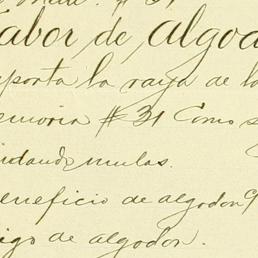 Labor de Algod
porta la raya de la
emoria # 31 Como s
idando mulas.
eneficio de algodon
igo de algodon.